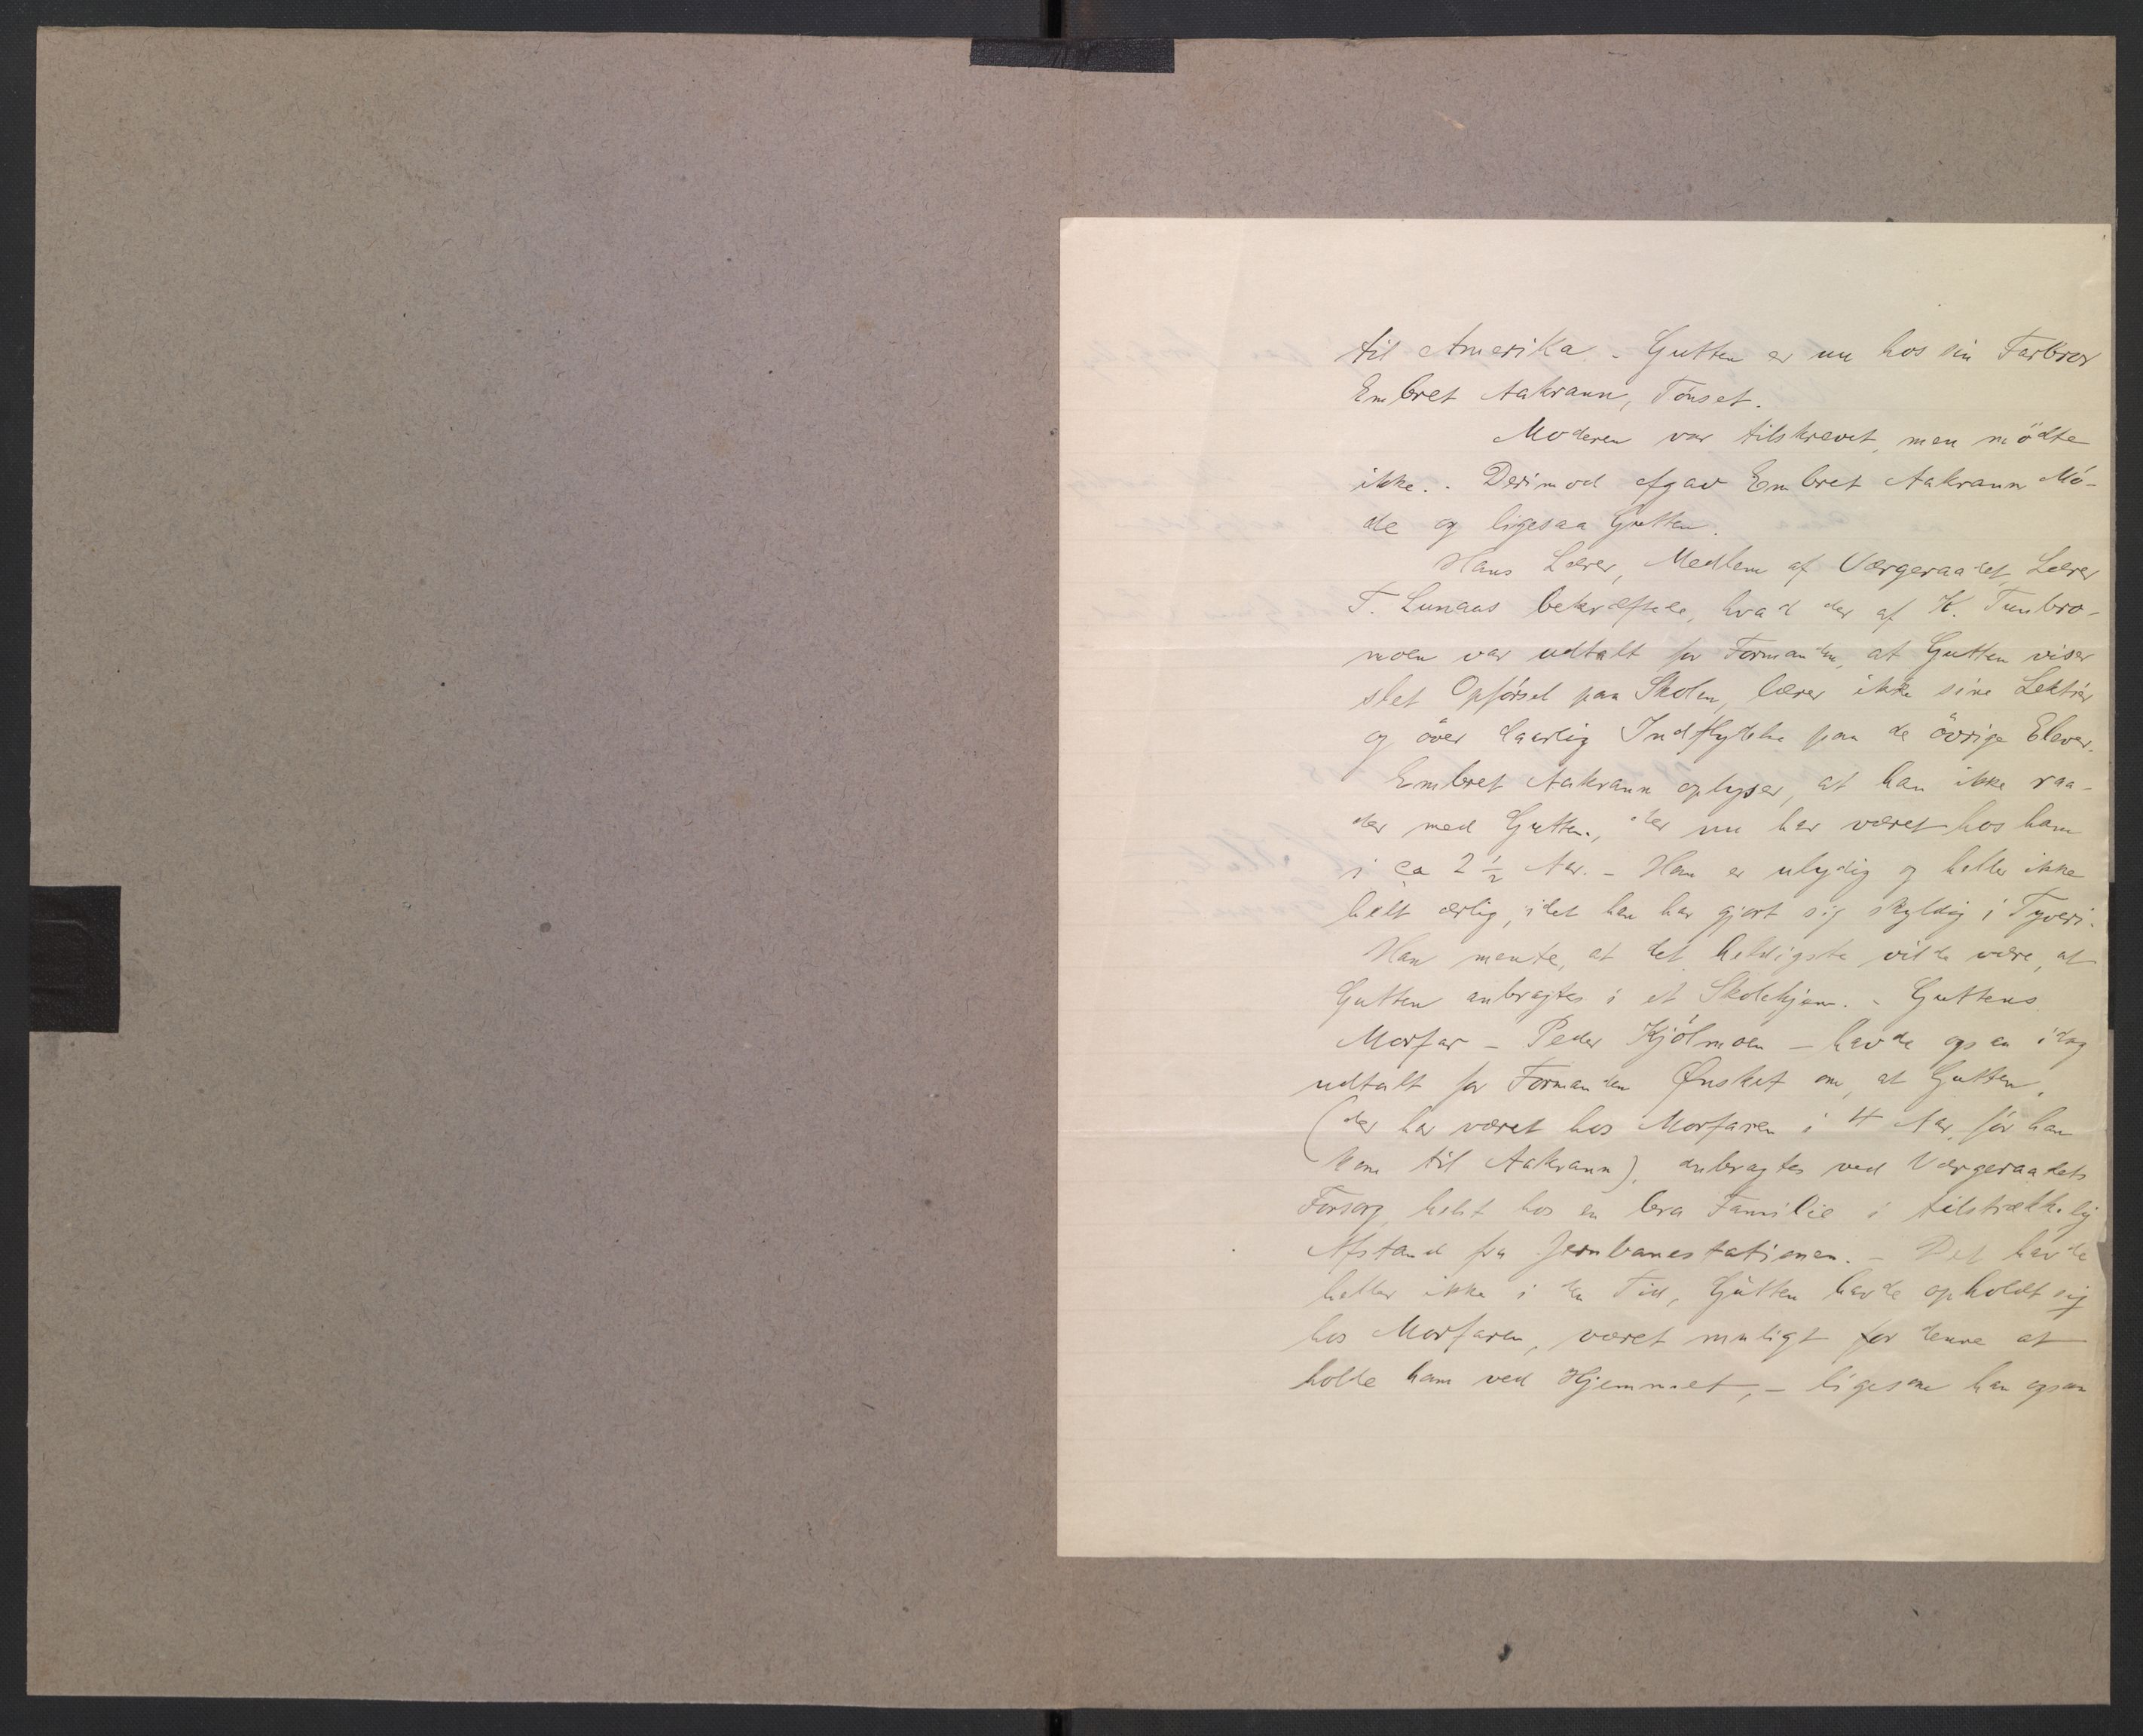 til Amerika. - Gutten er nu hos sin Farbror
Embret Aakrann, Tönset.
Moderen var tilskrevet, men mödte
ikke. - Derimod afgav Embret Aakrann Mö-
de og ligesaa Gutten.
Hans Lærer, Medlem af Værgeraadet, Lærer
T. Lunaas bekræftede, hvad der af K. Tunbro-
moen var udtalt for Formanden, at Gutten viser
slet Opförsel paa Skolen, lærer ikke sine Lektier
og över daarlig Indflydelse paa de övrige Elever.
Embret Aakrann oplyser, at han ikke raa-
der med Gutten, der nu har været hos ham
i ca 2 1/2 Aar. - Han er ulydig og heller ikke
helt ærlig, idet han har gjort sig skyldig i Tyveri.
Han mente, at det heldigste vilde være, at
Gutten anbragtes i et Skolehjem. - Guttens
Morfar - Peder Kjölmoen - havde ogsaa idag
udtalt for Formanden Ønsket om, at Gutten,
(der har været hos Morfaren i 4 Aar, för han
kom til Aakrann), anbragtes ved Værgeraadets
Forsorg, helst hos en bra Familie i tilstrækkelig
Afstand fra Jernbanestationen. - Det havde
heller ikke i den Tid, Gutten havde opholdt sig
hos Morfaren, været muligt for denne at
holde ham ved Hjemmet, - ligesom han ogsaa